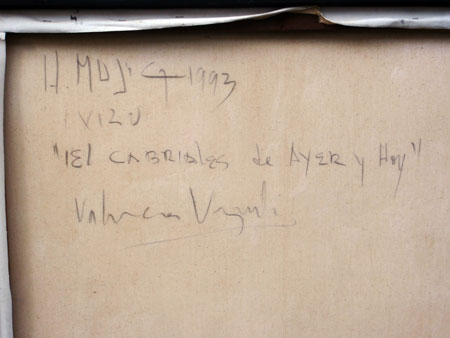 H. MUJICA 1993
VIZU
"El CABRIALES de AYER y Hoy"
Valencia